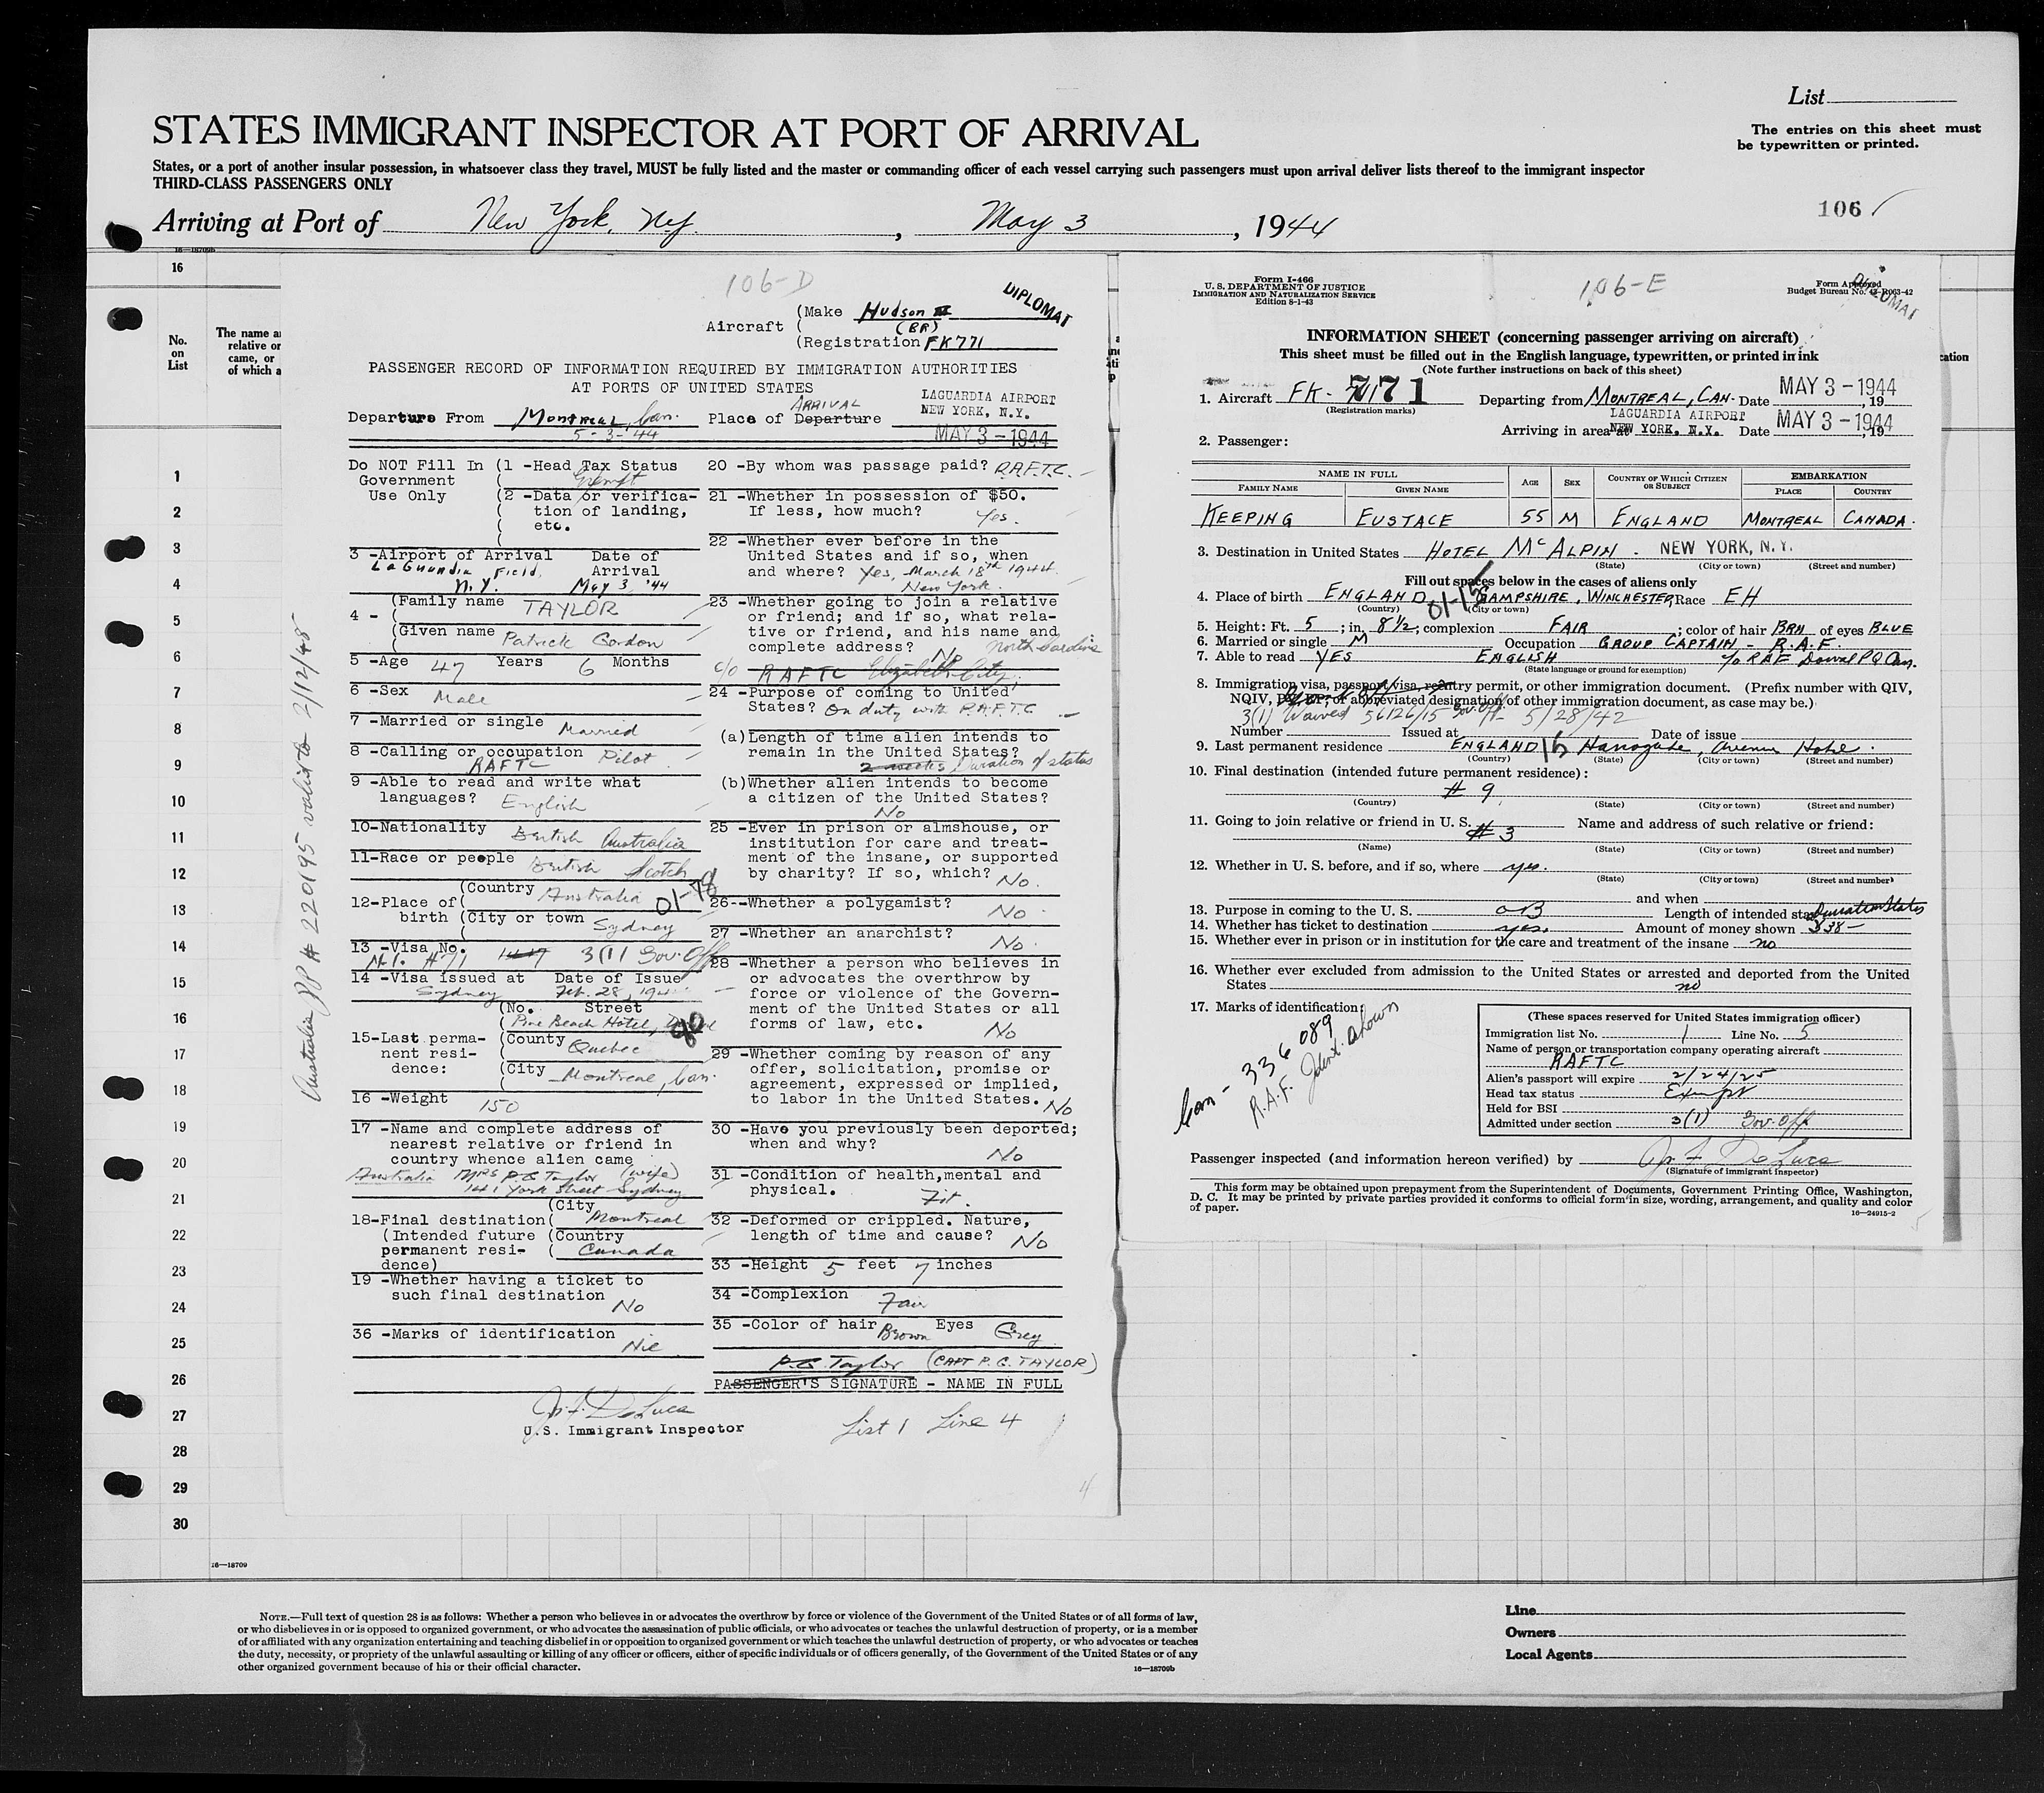 List
STATES IMMIGRANT INSPECTOR AT PORT OF ARRIVAL
The entries on this sheet must
be typewritten or printed.
States, or a port of another insular possession, in whatsoever class they travel, MUST be fully listed and the master or commanding officer of each vessel carrying such passengers must upon arrival deliver lists thereof to the immigrant inspector
THIRD-CLASS PASSENGERS ONLY
106
Arriving at Port of New York, N.Y. , May 3 , 1944
16—18709b
16
No.
on
List
The name a
relative or
came, or
of which a
1
2
3
4
5
6
7
8
9
10
11
12
13
14
15
16
17
18
19
20
21
22
23
24
25
26
27
28
29
30
16—18709
Australia PP # 220195 valid to 2/12/48
106-D
DIPLOMAT
Aircraft (Make Hudson III
(BR)
(Registration FK771
PASSENGER RECORD OF INFORMATION REQUIRED BY IMMIGRATION AUTHORITIES
AT PORTS OF UNITED STATES
Departure From Montreal, Can.
5-3-'44
Place of Departure ARRIVAL
LAGUARDIA AIRPORT
NEW YORK, N.Y.
MAY 3-1944
Do NOT Fill In
Government
Use Only
(1 -Head Tax Status
Exempt
(2 -Data or verifica-
tion of landing,
etc.
3 -Airport of Arrival Date of
Arrival
LaGuardia Field,
N.Y. May 3, '44
4 - (Family name TAYLOR
(Given name Patrick Gordon
5 -Age 47 Years 6 Months
6 -Sex Male
7 -Married or single Married
8 -Calling or occupation Pilot
RAFTC
9 -Able to read and write what
languages? English
10-Nationality British Australia
11-Race or people British Scotch
12-Place of birth (Country Australia 01-78
(City or town Sydney
13 -Visa No. 3(1) Gov. Off
14 -Visa issued at Date of Issue
Sydney Feb. 28,
15-Last perma-
nent resi-
dence:
(No. Street
Pine Beach Hotel,
(County Quebec
(City Montreal, Can.
16 -Weight 150
17 -Name and complete address of
nearest relative or friend in
country whence alien came
Australia Mrs P G Taylor (wife)
141 York Street Sydney
18-Final destination
(Intended future
permanent resi-
dence)
(City Montreal
(Country Canada
19 -Whether having a ticket to
such final destination
No
36 -Marks of identification
Nil
20 -By whom was passage paid? R.A.F.T.C.
21 -Whether in possession of $50.
If less, how much? Yes.
22 -Whether ever before in the
United States and if so, when
and where? Yes, March 18th 1944
New York.
23 -Whether going to join a relative
or friend; and if so, what rela-
tive or friend, and his name and
complete address? No
c/o RAFTC Elizabeth City, North Carolina
24 -Purpose of coming to United
States? On duty with R.A.F.T.C
(a)Length of time alien intends to
remain in the United States?
2 weeks Duration of status
(b)Whether alien intends to become
a citizen of the United States?
No
25 -Ever in prison or almshouse, or
institution for care and treat-
ment of the insane, or supported
by charity? If so, which? No.
26--Whether a polygamist? No
27 -Whether an anarchist? No
28 -Whether a person who believes in
or advocates the overthrow by
force or violence of the Govern-
ment of the United States or all
forms of law, etc. No
29 -Whether coming by reason of any
offer, solicitation, promise or
agreement, expressed or implied,
to labor in the United States. No
30 -Have you previously been deported;
when and why? No
31 -Condition of health,mental and
physical. Fit.
32 -Deformed or crippled. Nature,
length of time and cause? No
33 -Height 5 feet 7 inches
34 -Complexion Fair
35 -Color of hair Brown Eyes Grey
P.G. Taylor (CAPT P.G. TAYLOR)
PASSENGER'S SIGNATURE - NAME IN FULL
U.S. Immigrant Inspector
List 1 Line 4
4
Form I-466
U. S. DEPARTMENT OF JUSTICE
IMMIGRATION AND NATURALIZATION SERVICE
Edition 8-1-43
106-E
Form Approved
Budget Bureau No. 43-R063-42
DIPLOMAT
INFORMATION SHEET (concerning passenger arriving on aircraft)
This sheet must be filled out in the English language, typewritten, or printed in ink
(Note further instructions on back of this sheet)
1. Aircraft FK-771 Departing from MONTREAL, CAN. Date MAY 3-1944, 19
(Registration marks)
LAGUARDIA AIRPORT
Arriving in area at NEW YORK, N.Y. Date MAY 3-1944, 19
2. Passenger:
NAME IN FULL
FAMILY NAME
GIVEN NAME
AGE
SEX
COUNTRY OF WHICH CITIZEN
OR SUBJECT
EMBARKATION
PLACE
COUNTRY
KEEPING EUSTACE 55 M ENGLAND MONTREAL CANADA.
3. Destination in United States HOTEL McALPIN. NEW YORK, N.Y.
(State) (City or town) (Street and number)
Fill out spaces below in the cases of aliens only
4. Place of birth ENGLAND HAMPSHIRE, WINCHESTER Race EH
(Country) (City or town)
5. Height: Ft. 5 ; in. 8½, complexion FAIR ; color of hair BRN of eyes BLUE
6. Married or single M Occupation GROUP CAPTAIN - R.A.F.
7. Able to read YES ENGLISH c/o RAF Dorval PQ Can.
(State language or ground for exemption)
8. Immigration visa, passport visa, reentry permit, or other immigration document. (Prefix number with QIV,
NQIV, PV, RP, or abbreviated designation of other immigration document, as case may be.)
3(1) Waived 56126/15 Gov. Off. 5/28/42
Number Issued at Date of issue
9. Last permanent residence ENGLAND Harrogate, Avenue Hotel.
(Country) (State) (City or town) (Street and number)
10. Final destination (intended future permanent residence):
# 9
(Country) (State) (City or town) (Street and number)
11. Going to join relative or friend in U. S. # 3 Name and address of such relative or friend:
(Name) (State) (City or town) (Street and number)
12. Whether in U. S. before, and if so, where yes.
(State) (City or town) (Street and number)
and when
13. Purpose in coming to the U. S. OB Length of intended stay Duration Status
14. Whether has ticket to destination yes. Amount of money shown $38—
15. Whether ever in prison or in institution for the care and treatment of the insane no
16. Whether ever excluded from admission to the United States or arrested and deported from the United
States no
17. Marks of identification
Can - 336089
R.A.F. Ident. shown
(These spaces reserved for United States immigration officer)
Immigration list No. 1 Line No. 5
Name of person or transportation company operating aircraft
RAFTC
Alien's passport will expire 2/24/25
Head tax status Exempt
Held for BSI
Admitted under section 3(1) Gov. Off
Passenger inspected (and information hereon verified) by
(Signature of immigrant inspector)
This form may be obtained upon prepayment from the Superintendent of Documents, Government Printing Office, Washington,
D. C. It may be printed by private parties provided it conforms to official form in size, wording, arrangement, and quality and color
of paper.
16—24915-2
cation
NOTE.—Full text of question 28 is as follows: Whether a person who believes in or advocates the overthrow by force or violence of the Government of the United States or of all forms of law,
or who disbelieves in or is opposed to organized government, or who advocates the assassination of public officials, or who advocates or teaches the unlawful destruction of property, or is a member
of or affiliated with any organization entertaining and teaching disbelief in or opposition to organized government or which teaches the unlawful destruction of property, or who advocates or teaches
the duty, necessity, or propriety of the unlawful assaulting or killing of any officer or officers, either of specific individuals or of officers generally, of the Government of the United States or of any
other organized government because of his or their official character.
16—18709b
Line
Owners
Local Agents